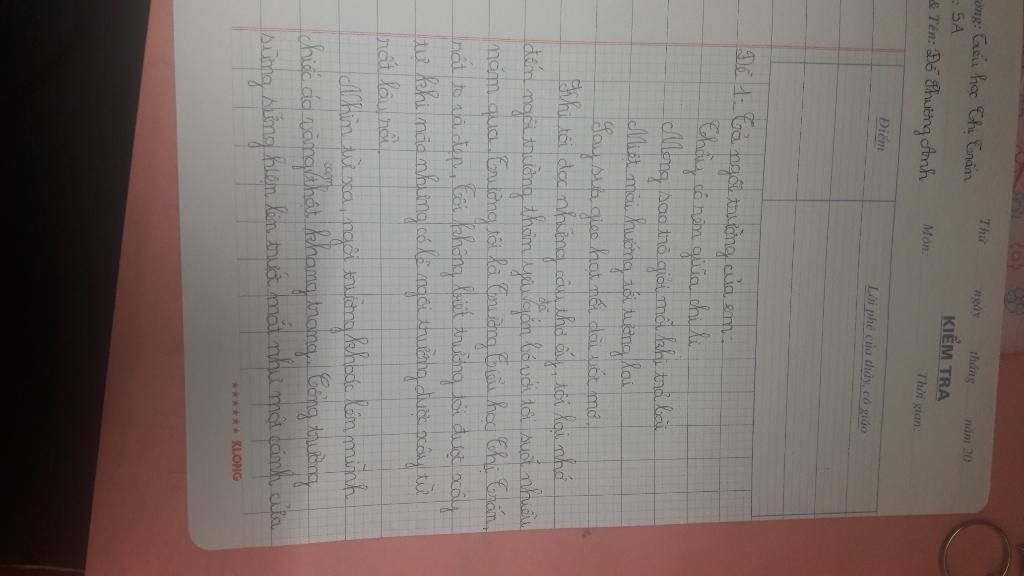 ờng: Tiểu học Thị Trấn
Thứ ngày tháng năm 20
: 5A
KIỂM TRA
& Tên: Đỗ Phương Anh
Môn:
Thời gian:
Điểm
Lời phê của thầy, cô giáo
Đề 1: Tả ngôi trường của em.
Thầy cô rộn giữa chi li
Mong sao trò giỏi mỗi khi trả bài
Miệt mài hướng tới tương lai
Say sưa gieo hạt nối dài ước mơ.
Khi tôi đọc những câu thơ ấy, tôi lại nhớ
đến ngôi trường thân yêu đã gắn bó với tôi suốt nhiều
năm qua. Trường tôi là Trường Tiểu học Thị Trấn,
rất to và đẹp, Tôi không biết trường tôi được xây
tự khi nào nhưng có lẽ ngôi trường được xây từ
rất lâu rồi.
Nhìn từ xa, ngôi trường khoác lên mình
chiếc áo vàng nhạt khang trang. Cổng trường
sừng sững hiện lên trước mắt như một cánh cửa
****** KLONG